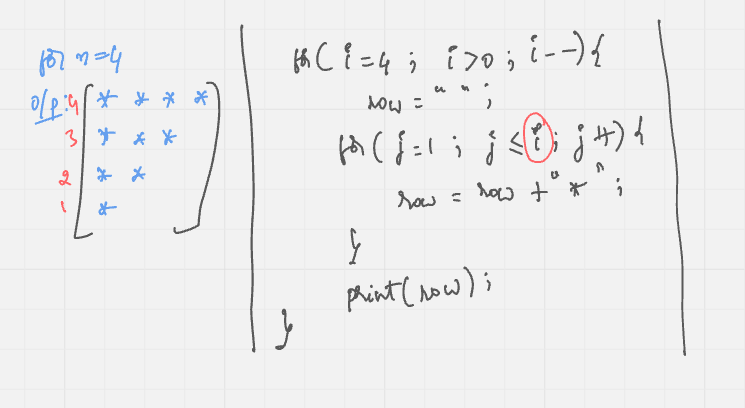 for n=4
o/p: 4 * * * *
3 * * *
2 * *
1 *
for( i=4 ; i>0 ; i--){
row = " " ;
for( j=1 ; j ≤ i ; j++) {
row = row + " * " ;
}
print(row) ;
}